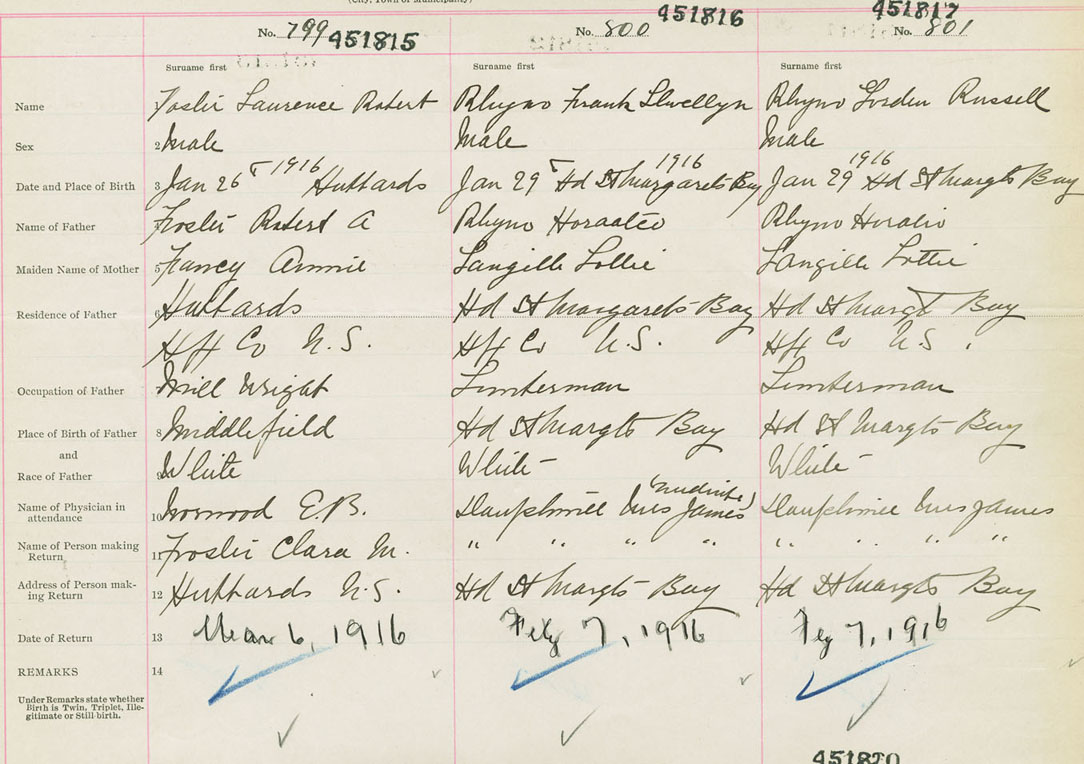 (City, Town or Municipality)
No. 799 451815
No. 800 451816
No. 801 451817
Surname first Surname first Surname first
Name 1 Laurence Robert Rhyno Frank Llwellyn Rhyno Gordon Russell
Sex 2 Male Male Male
Date and Place of Birth 3 Jan 26 1916 Hubbards Jan 29 1916 Hd St Margarets Bay Jan 29 1916 Hd St Margts Bay
Name of Father Robert A Rhyno Rhyno Horatio
Maiden Name of Mother 5 Fancy Annie Langille Lottie Langille Lottie
Residence of Father 6 Hubbards Hd St Margarets Bay Hd St Margt Bay
Hfx Co N.S. Hfx Co N.S. Hfx Co N.S.
Occupation of Father Mill Wright Lumberman Lumberman
Place of Birth of Father 8 Middlefield Hd St Margts Bay Hd St Margts Bay
and
Race of Father 9 White White White
Name of Physician in
attendance 10 E.B. Dauphinee Mrs James (midwife) Dauphinee Mrs James
Name of Person making
Return 11 Clara M. " " " " " " " "
Address of Person mak-
ing Return 12 Hubbards N.S. Hd St Margts Bay Hd St Margts Bay
Date of Return 13 Mar 6, 1916 7, 1916 7, 1916
REMARKS 14
Under Remarks state whether
Birth is Twin, Triplet, Ille-
gitimate or Still-birth.